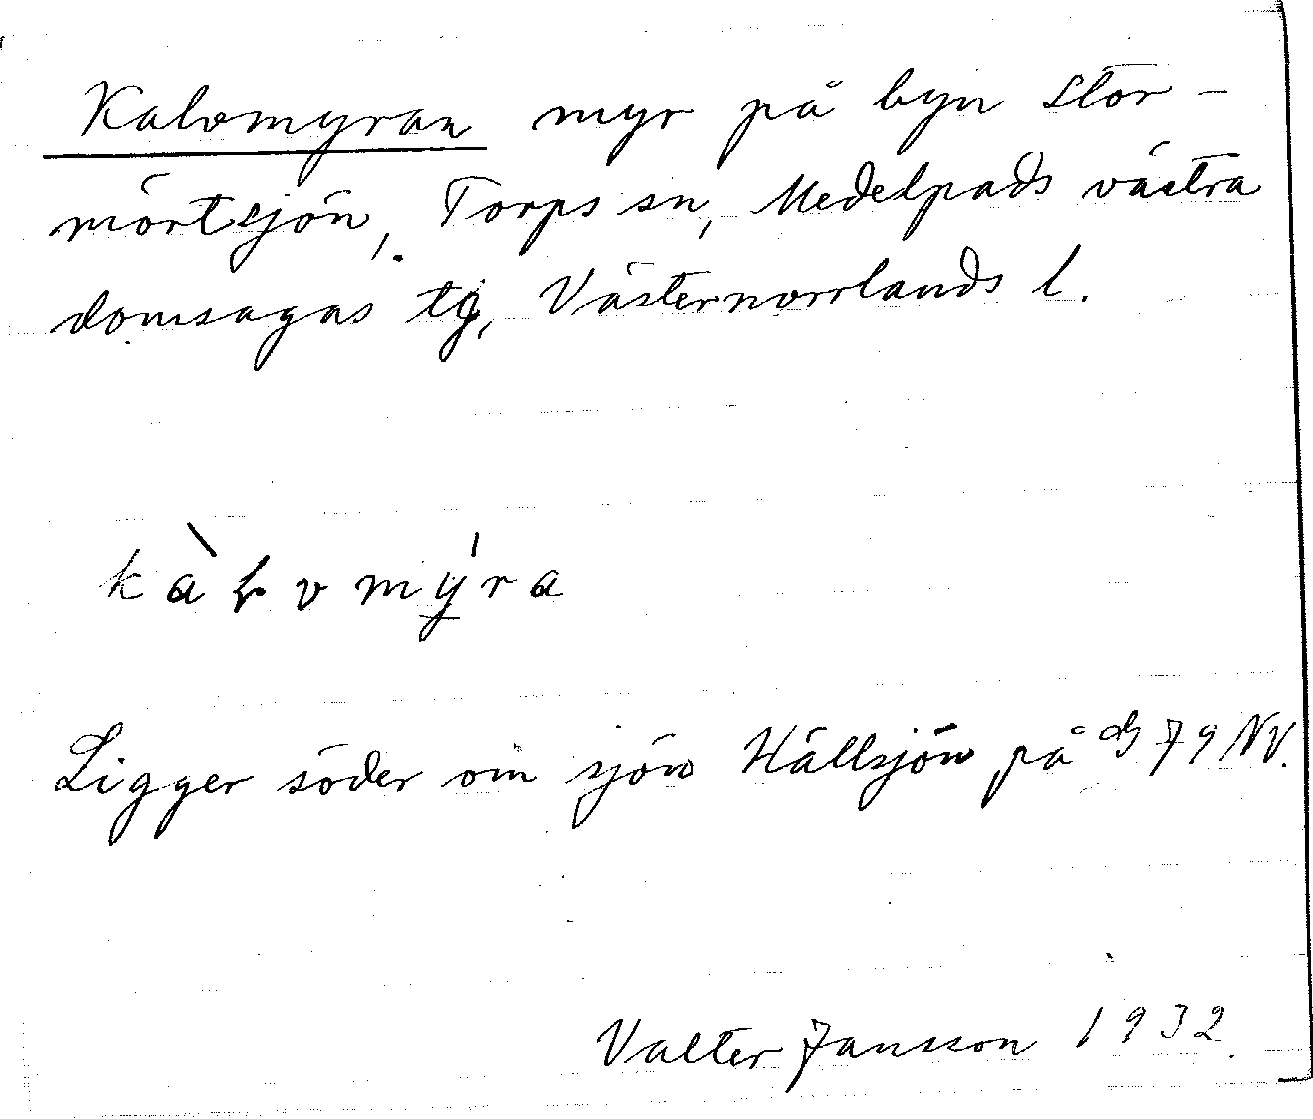 Kalvmyran myr på byn Stor-
mörtsjön, Torps sn, Medelpads västra
domsagas tg, Västernorrlands l.
kàɽvmýra
Ligger söder om sjön Hällsjön på 79 NV.
Valter Jansson 1932.